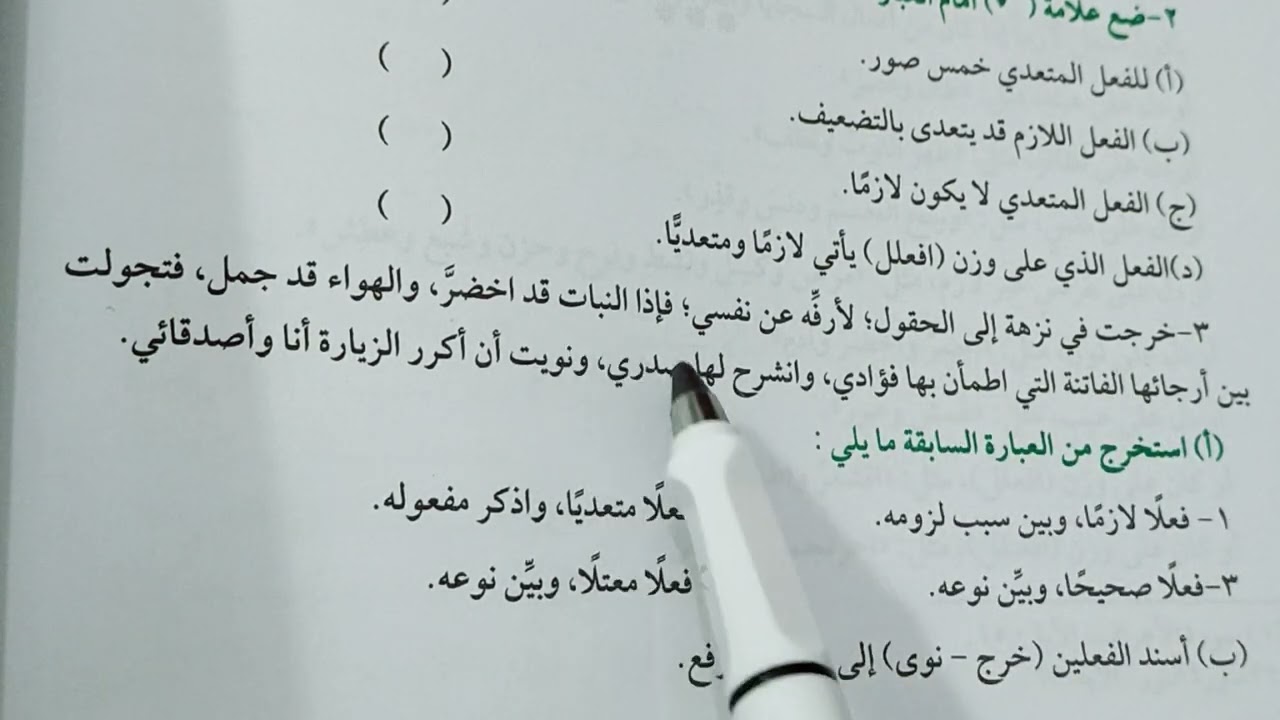 ٢-ضع علامة (
(أ) للفعل المتعدي خمس صور. ( )
(ب) الفعل اللازم قد يتعدى بالتضعيف. ( )
(ج) الفعل المتعدي لا يكون لازمًا. ( )
(د)الفعل الذي على وزن (افعلل) يأتي لازمًا ومتعديًّا.
٣-خرجت في نزهة إلى الحقول؛ لأرفِّه عن نفسي؛ فإذا النبات قد اخضرَّ، والهواء قد جمل، فتجولت
بين أرجائها الفاتنة التي اطمأن بها فؤادي، وانشرح لها صدري، ونويت أن أكرر الزيارة أنا وأصدقائي.
(أ) استخرج من العبارة السابقة ما يلي :
١- فعلًا لازمًا، وبين سبب لزومه. متعديًا، واذكر مفعوله.
٣-فعلًا صحيحًا، وبيِّن نوعه. فعلًا معتلًا، وبيِّن نوعه.
(ب) أسند الفعلين (خرج - نوى) إلى